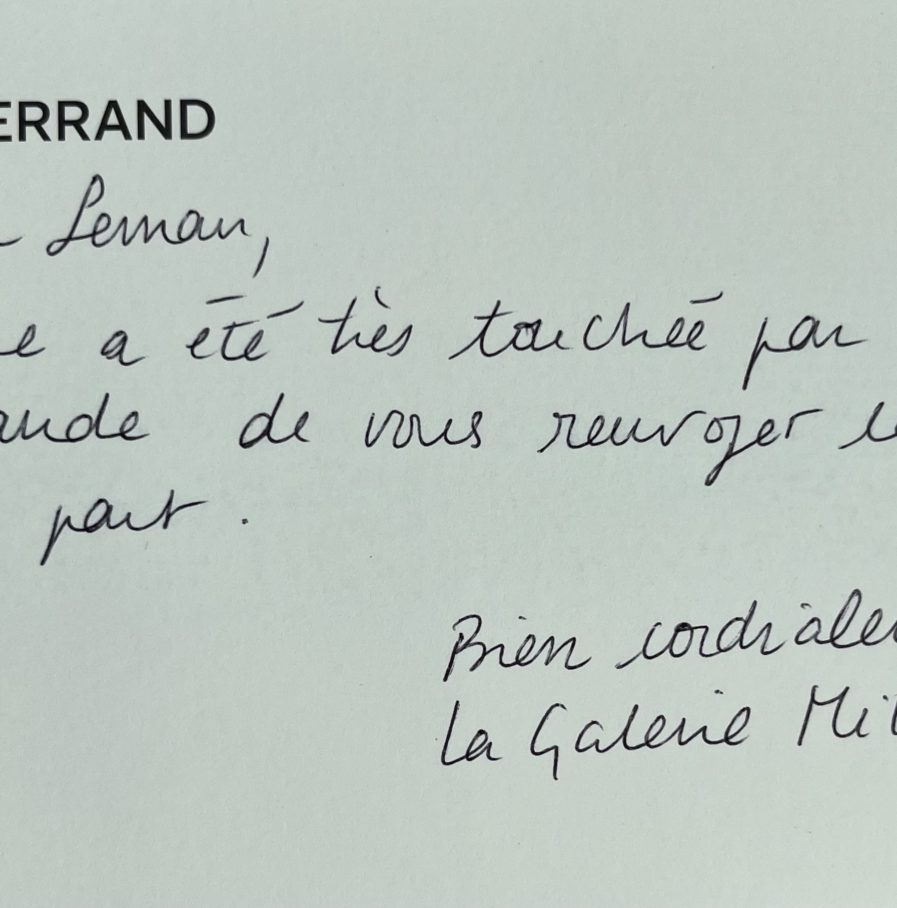 ERRAND
Leman,
e a été très touchée par
ande de vous renvoyer
part.
Bien cordiale
La Galerie Mit